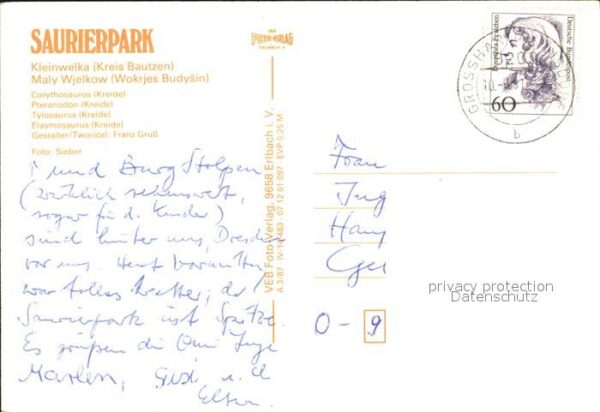 SAURIERPARK
Kleinwelka (Kreis Bautzen)
Mały Wjelkow (Wokrjes Budyšin)
Corythosaurus (Kreide)
Pteranodon (Kreide)
Tylosaurus (Kreide)
Elasmosaurus (Kreide)
Gestalter/Tworićel: Franz Gruß
Foto: Sieber
↑ und Burg Stolpen
(wirklich sehenswert,
sogar für d. Kinder)
sind hinter uns, Dresden
vor uns. Heut
war tolles Wetter, der
Saurierpark ist Spitze.
Es grüßen die Omi Inge
Marlen, u. d.
Eltern
VEB Foto-Verlag, 9658 Erlbach i. V.
A 3/87 IV-14-483 07 12 01 097 EVP 0,25 M
Deutsche Bundespost
60
GROSSHA
b
Frau
Ing
Hans
O - 9
privacy protection
Datenschutz